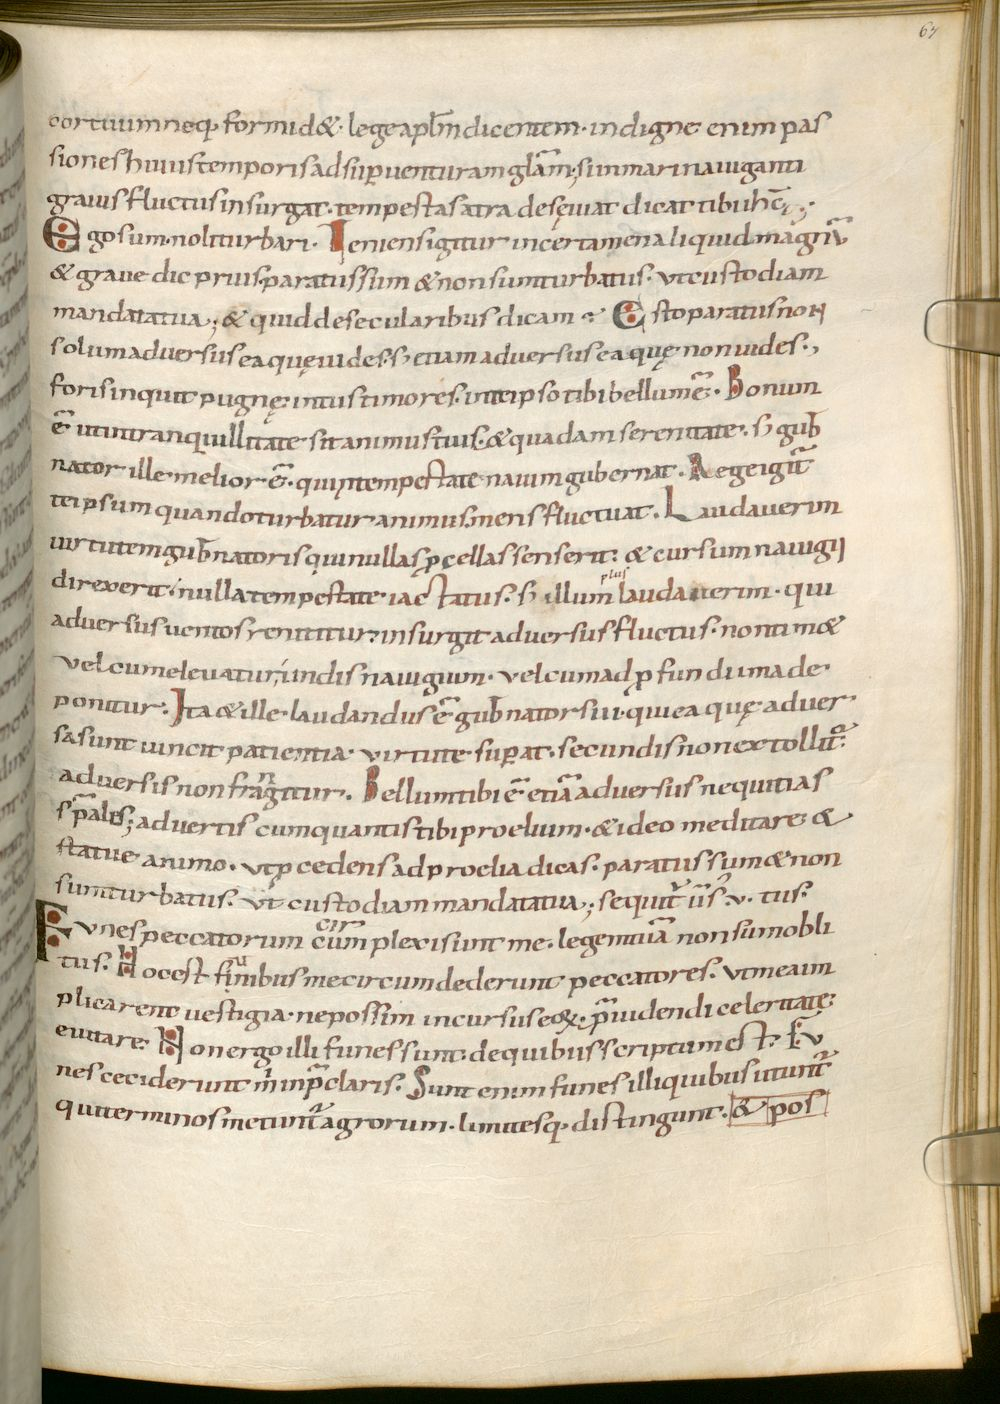 67
cor tuum neq; formid&. lege aplm̄ dicentem. indigne enim pas
siones huius temporis ad sup̱uenturam glām; si in mari nauiganti
grauis fluctus insurgat. tempestas atra desęuiat dicat tibi hc̄;
Ego sum. noli turbari. Ieiens igitur in certamen aliquid magnū
& graue dic prius. paratus sum & non sum turbatus. ut custodiam
mandata tua; & quid de secularibus dicam? Esto paratus non
solum aduersus ea quę uides. s; etiam aduersus ea quę non uides.,
foris inquit pugnę. intus timores. inte ipso tibi bellum ē. Bonum
ē ut in tranquillitate sit animus tuus. & quadam serenitate. s; gub̄
nator ille melior ē. qui in tempestate nauim gubernat. Rege igit̄
te ipsum quando turbatur animus. mens fluctuat. Laudauerim
uirtutem gub̄natoris qui nullas p̱cellas senserit. & cursum nauigii
direxerit. nulla tempestate iactatus. s; illum plus laudauerim. qui
aduersus uentos renititur. insurgit aduersus fluctus. non tim&
uel cum eleuatur undis nauigium. uel cum ad p̱fundum a de
ponitur. Ita & ille laudandus ē gub̄nator sui. qui ea quę aduer
sa sunt uincit patientia. uirtute sup̱at. secundis non extollit̄.
aduersis non frangitur. Bellum tibi ē etiā aduersus nequitias
sp̄alis; aduertis cum quantis tibi proelium. & ideo meditare &
statue animo. ut p̱cedens ad proelia dicas. paratus sum & non
sum turbatus. Ut custodiam mandata tua; sequit̄ ūs. u. tus.
Funes peccatorum circum plexi sunt me. legem tuā non sum obli
tus. Hoc est funibus me circumdederunt peccatores. ut mea im
plicarent uestigia. ne possim incursus eoꝝ. p̄uidendi celeritate
euitare. Non ergo illi funes sunt. de quibus scriptum est. Fu
nes ceciderunt m̄ in p̄claris. Sunt enim funes illi quibus utunt̄
qui terminos metiunt̄ agrorum. limitesq; distingunt. & pos